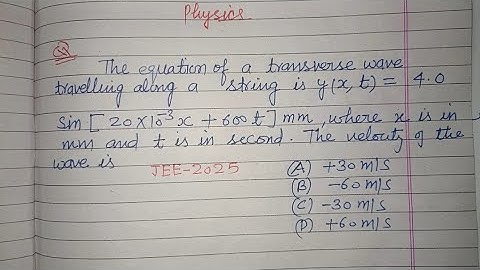 Physics.
Q
The equation of a transverse wave
travelling along a string is y(x, t) = 4.0
Sin [20×10⁻³x + 600t] mm, where x is in
mm and t is in second. The velocity of the
wave is
JEE-2025
(A) +30 m/s
(B) -60 m/s
(C) -30 m/s
(D) +60 m/s